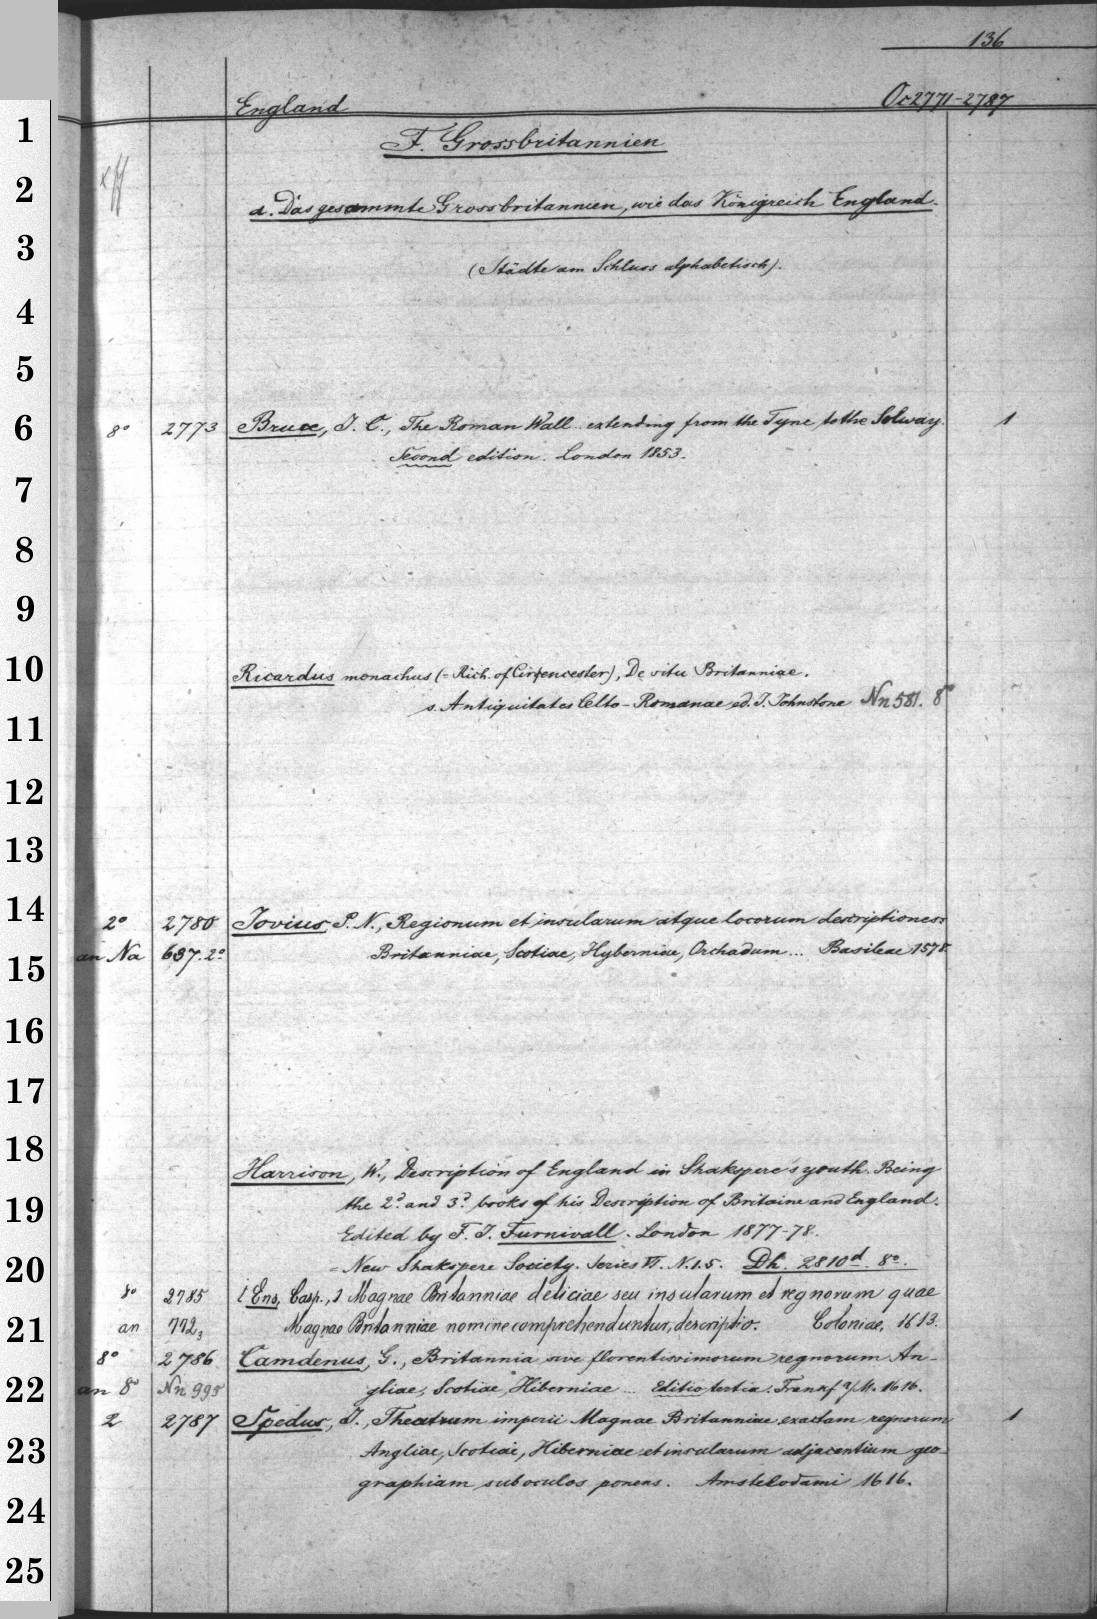 136
England Oc 2771-2787
F. Grossbritannien
a. Das gesammte Grossbritannien, wie das Königreich England.
(Städte am Schluss alphabetisch).
8° 2773 Bruce, J. C., The Roman Wall .. extending from the Tyne to the Solway. 1
Second edition. London 1853.
Ricardus monachus (= Rich. of Cirencester), De situ Britanniae.
s. Antiquitates Celto-Romanae ed. J. Johnstone Nn 581. 8°
2° 2780 Jovius, P. N., Regionum et insularum atque locorum descriptiones
an Na 637. 2° Britanniae, Scotiae, Hyberniae, Orchadum ... Basileae 1578
Harrison, W., Description of England in Shakspere's youth. Being
the 2d. and 3d. books of his Description of Britaine and England.
Edited by F. J. Furnivall. London 1877-78.
= New Shakspere Society. Series VI. N. 1.5. Dk. 2810d. 8°.
8° 2785 [Ens, Casp.,] Magnae Britanniae deliciae seu insularum et regnorum quae
an 772, Magnae Britanniae nomine comprehenduntur, descriptio. Coloniae, 1613.
8° 2786 Camdenus, G., Britannia sive florentissimorum regnorum An-
an 8° Nn 995 gliae, Scotiae, Hiberniae ... Editio tertia. Frankf a/M. 1616.
2 2787 Spedus, J., Theatrum imperii Magnae Britanniae exactam regnorum 1
Angliae, Scotiae, Hiberniae et insularum adjacentium geo-
graphiam sub oculos ponens. Amstelodami 1616.
1
2
3
4
5
6
7
8
9
10
11
12
13
14
15
16
17
18
19
20
21
22
23
24
25